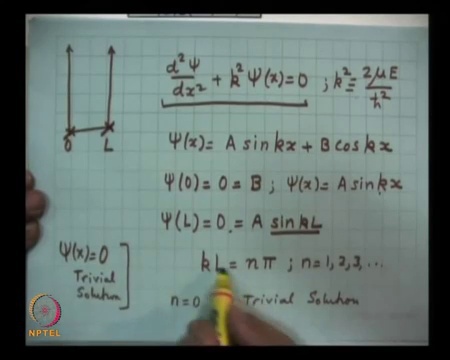 d²Ψ/dx² + k²Ψ(x)=0 ; k² ≡ 2μE/ħ²
0 L
Ψ(x)= A sin kx + B cos kx
Ψ(0)= 0 = B ; Ψ(x)= A sin kx
Ψ(L)= 0 = A sin kL
Ψ(x)=0
Trivial
Solution
kL = nπ ; n=1,2,3, ...
n=0 Trivial Solution
NPTEL